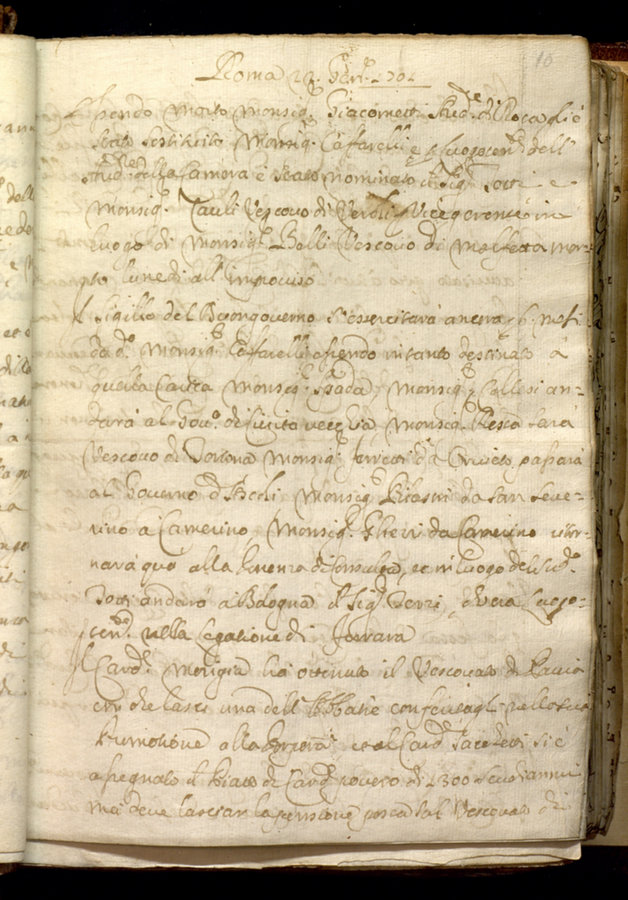 10
Roma 22. Genn.º 1701
Essendo morto Monsig.r Giacometti Aud.re di Rota gli è
stato sostituito Monsig.r Caffarelli e p luogoten.te dell'
Aud.re della Camera è stato nominato il Sig.r Totti e
Monsig.r Tauli Vescovo di Veroli p Vicegerente in
luogo di Monsig.r Belli Vescovo di Molfetta mor=
to lunedì all'improviso
Il Sigillo del Buongoverno s'essercitarà ancora p 6. mesi
da d.º Monsig.r Caffarelli essendo intanto destinato à
quella Carica Monsig.r Spada, Monsig.r Collesi an=
darà al Gov.º di Civita vecchia Monsig.r Resta sarà
Vescovo di Tortona Monsig.r ferretti da Orvieto passarà
al Governo d'Ascoli Monsig.r da San Seve=
rino a Camerino, Monsig.r da Camerino ritor=
narà quà alla di Consulta, et in luogo del Sud.º
Totti andarà à Bologna il Sig.r Terzi, ch'era luogo=
ten.te nella legatione di Ferrara
Il Card.l Morigia hà ottenuto il Vescovato di Pavia
con che lasci una dell'Abbatie conferitagli nella sua
Promotione alla Porpora et al Card.l Sacchetti si è
assegnato il Piatto di Card.l povero di 1300 Scudi annui
mà deve lasciar la pensione sul Vescovato di